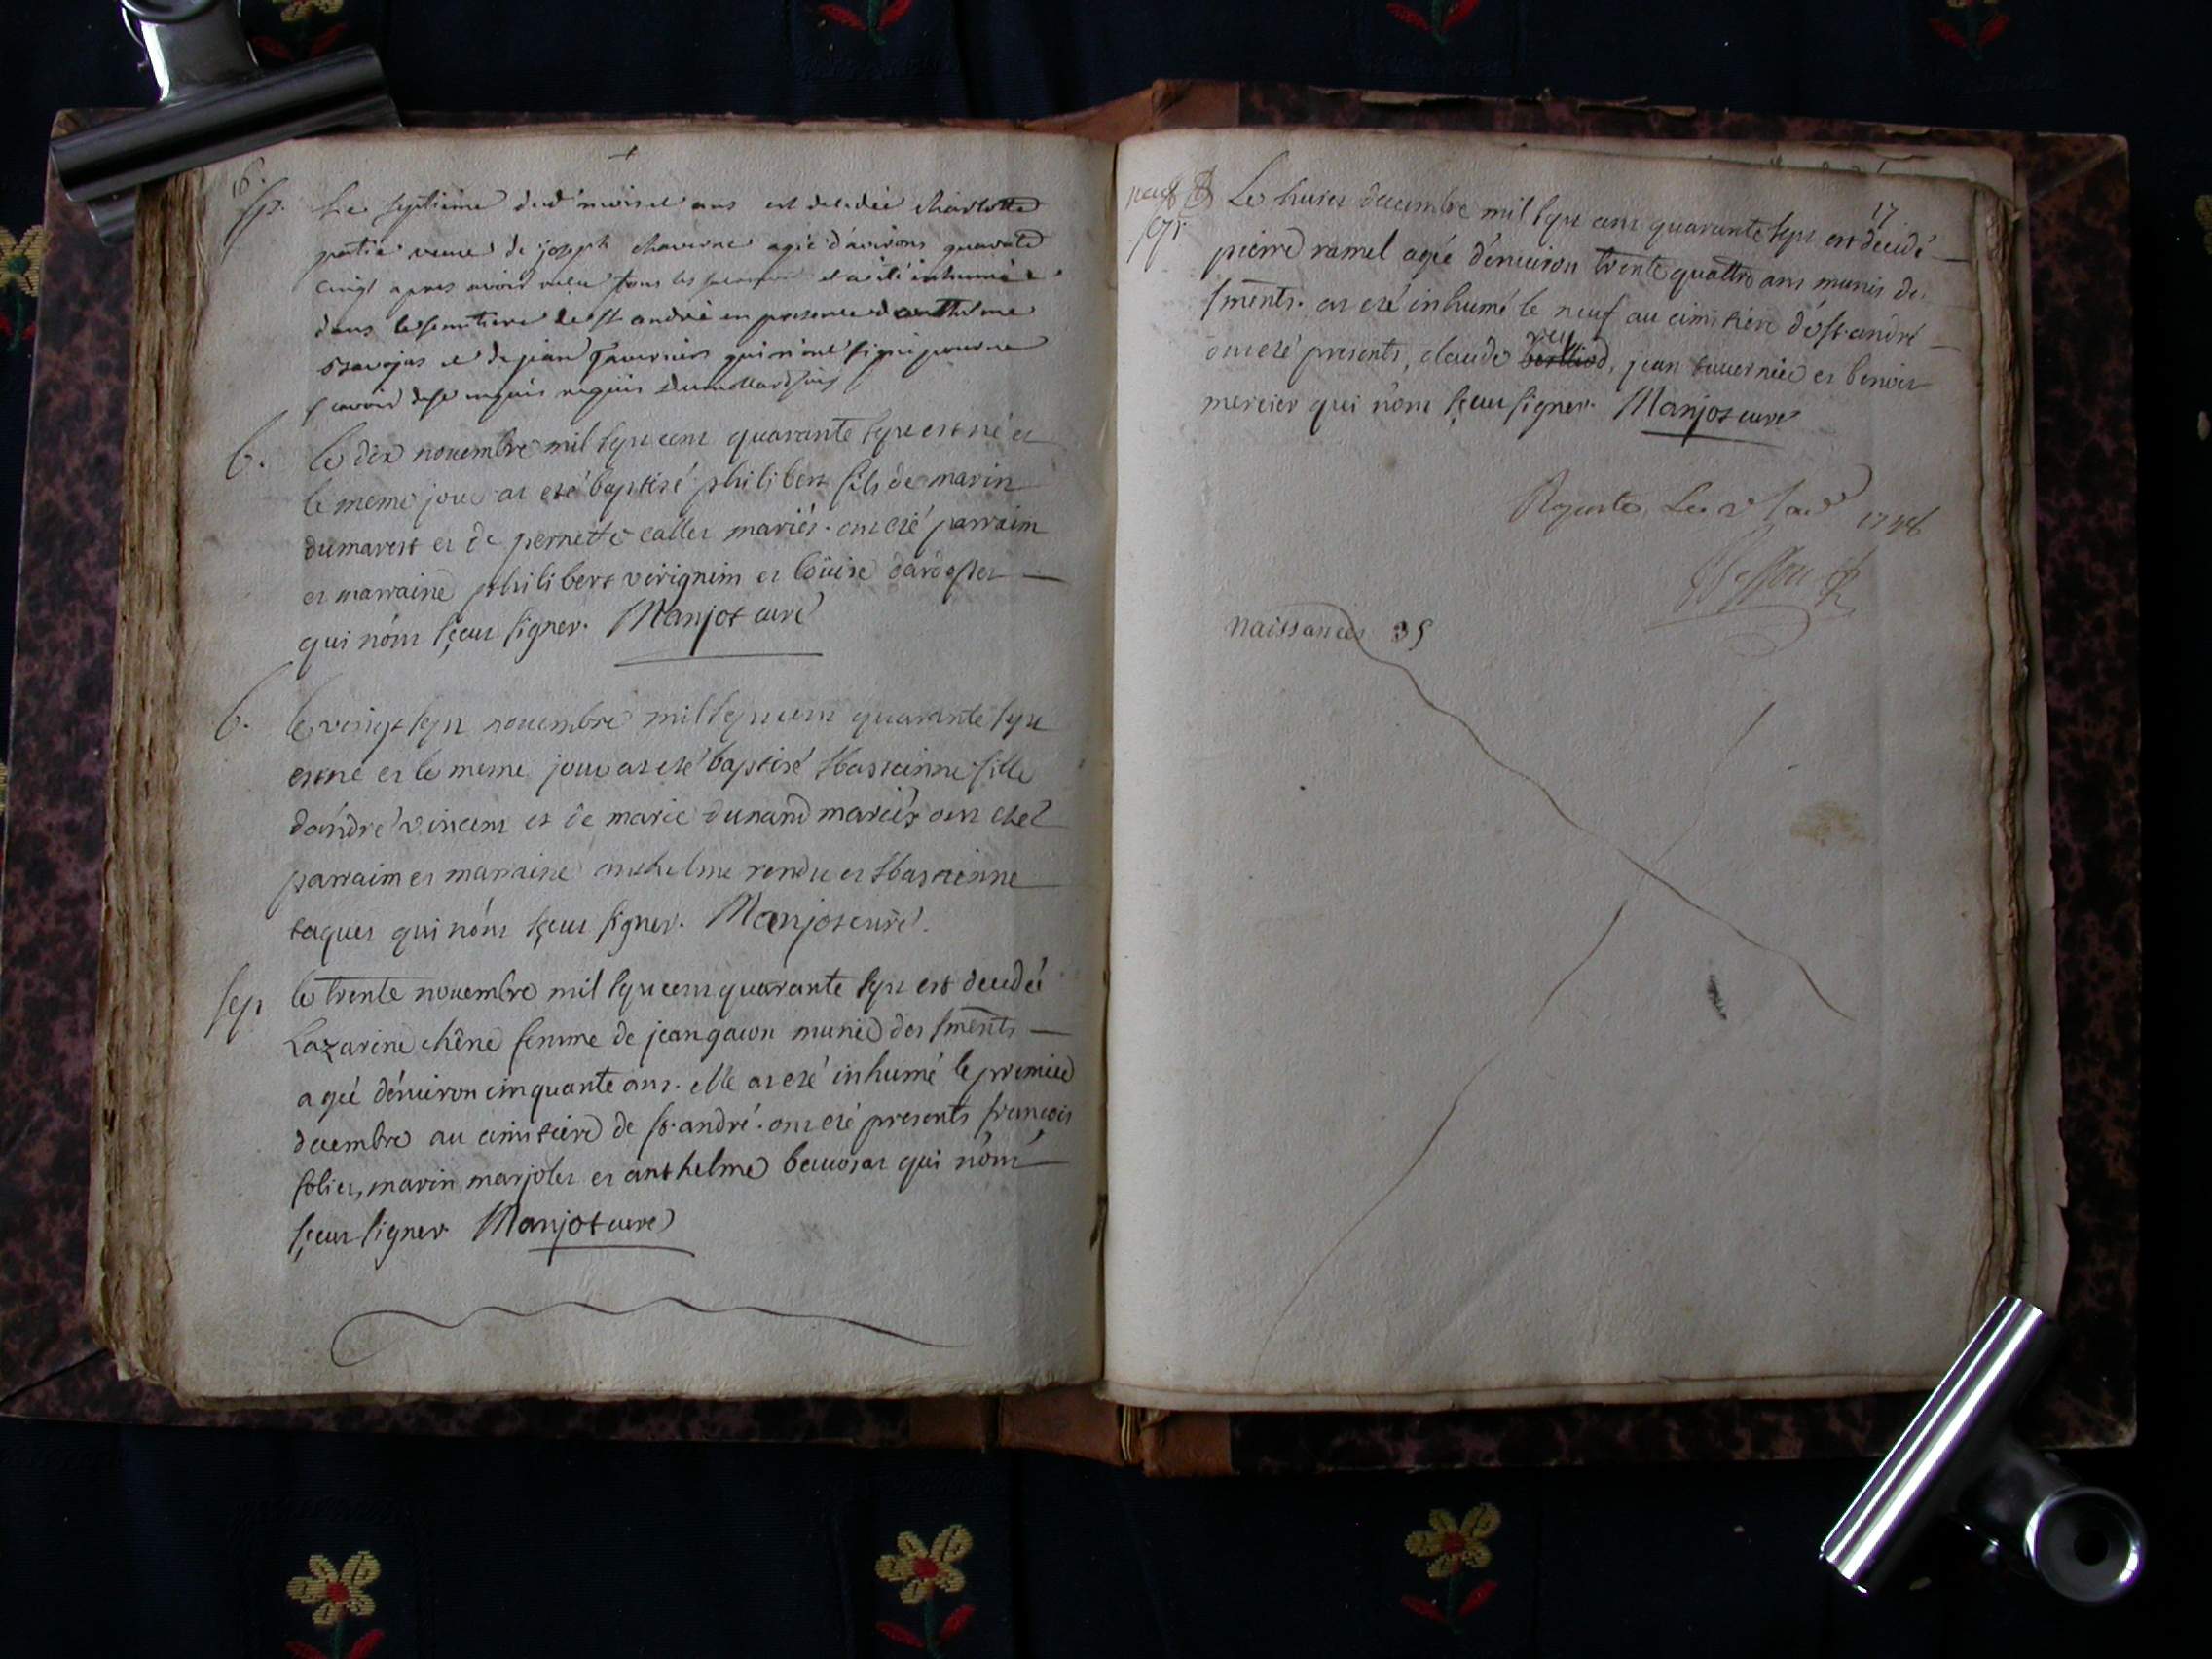 16.
+
sp. Le septieme dud mois et ans est decedée charlotte
veuve de joseph chaverne agée d'environs quarate
cingt apres avoir receu tous les et a été inhumée
dans le semitiere de st andré en presence d'anthelme
et de jean Tavernier qui n'ont signé pour ne
scavoir de ce enquis requis
b. le dix nouembre mil sept cent quarante sept est né et
le meme jour at eté baptisé philibert fils de marin
dumarest et de pernette callet mariés. ont eté parrain
et marraine philibert verignin et loüise
qui n'ont sçeut signer. Manjot curé
b. le vingt sept nouembre mil sept cent quarante sept
est né et le meme jour at eté baptisé sbastienne fille
d'andré vincent et de marie dunand mariés ont eté
parrain et marraine anthelme rendu et sbastienne
taquet qui n'ont sçeut signer. Manjot curé.
sep le trente nouembre mil sept cent quarante sept est decedée
Lazarine chêne femme de jean gacon munie des sments
agé d'enuiron cinquante ans. elle at eté inhumé le premier
decembre au cimitiere de st. andré. ont eté presents françois
soliet, marin marjolet et anthelme qui n'ont
sçeut signer Manjot curé
17
sept. Le huict decembre mil sept cent quarante sept est decedé
pierre ramel agé d'enuiron trente quattre ans munis des
sments. at eté inhumé le neuf au cimitiere de st. andré
ont eté presents, claude, jean tauernier et benoit
mercier qui n'ont sçeut signer. Manjot curé
1748
naissances 35